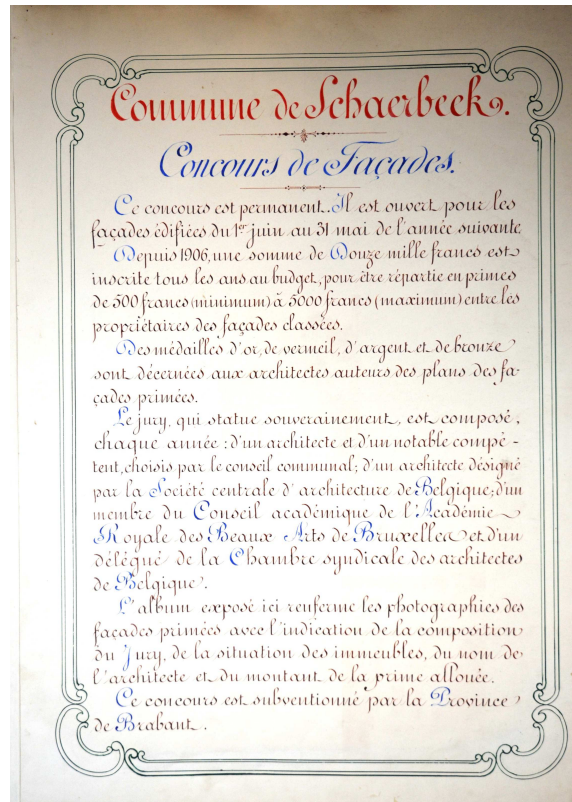 Commune de Schaerbeek.
Concours de Façades.
Ce concours est permanent. Il est ouvert pour les
façades édifiées du 1er juin au 31 mai de l'année suivante.
Depuis 1906, une somme de Douze mille francs est
inscrite tous les ans au budget, pour être répartie en primes
de 500 francs (minimum) à 5000 francs (maximum) entre les
propriétaires des façades classées.
Des médailles d'or, de vermeil, d'argent et de bronze
sont décernées aux architectes auteurs des plans des fa-
çades primées.
Le jury, qui statue souverainement, est composé,
chaque année : d'un architecte et d'un notable compé-
tent, choisis par le conseil communal; d'un architecte désigné
par la Société centrale d'architecture de Belgique; d'un
membre du Conseil académique de l'Académie
Royale des Beaux Arts de Bruxelles et d'un
délégué de la Chambre syndicale des architectes
de Belgique.
L'album exposé ici renferme les photographies des
façades primées avec l'indication de la composition
du Jury, de la situation des immeubles, du nom de
l'architecte et du montant de la prime allouée.
Ce concours est subventionné par la Province
de Brabant.